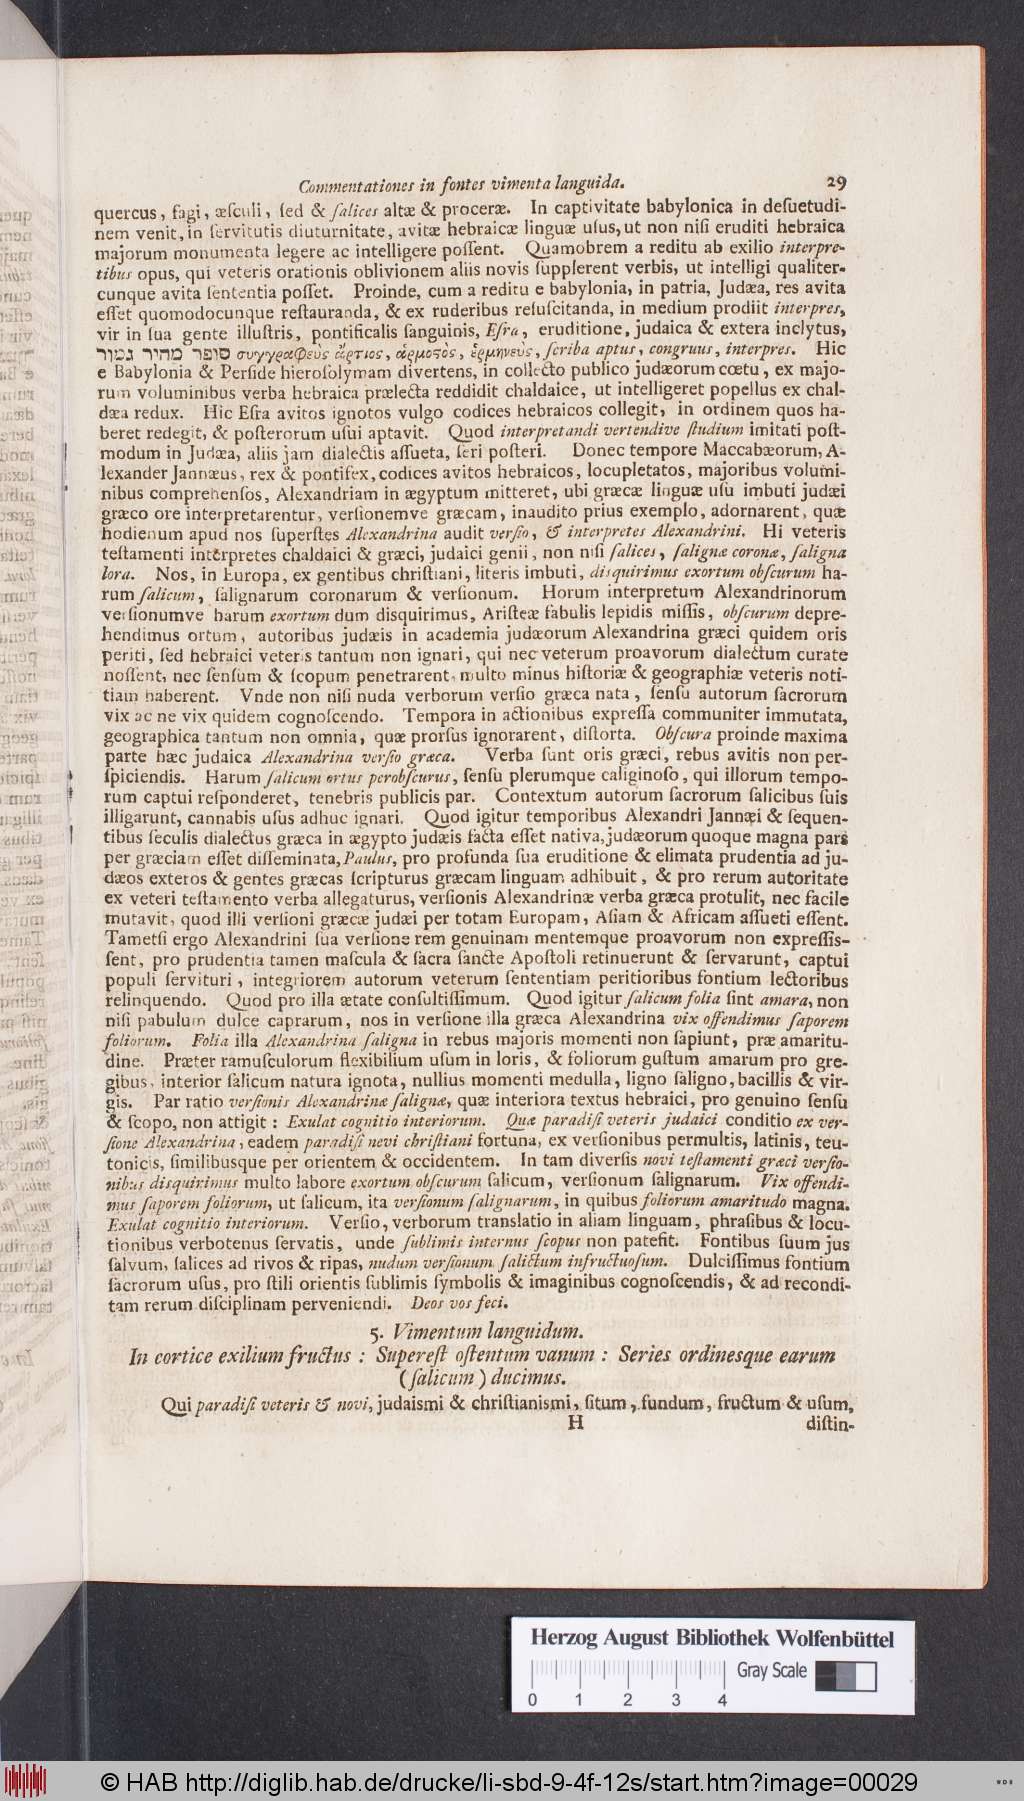 Commentationes in fontes vimenta languida. 29
quercus, fagi, æſculi, ſed & ſalices altæ & proceræ. In captivitate babylonica in deſuetudi-
nem venit, in ſervitutis diuturnitate, avitæ hebraicæ linguæ uſus, ut non niſi eruditi hebraica
majorum monumenta legere ac intelligere poſſent. Quamobrem a reditu ab exilio interpre-
tibus opus, qui veteris orationis oblivionem aliis novis ſupplerent verbis, ut intelligi qualiter-
cunque avita ſententia poſſet. Proinde, cum a reditu e babylonia, in patria, Judæa, res avita
eſſet quomodocunque reſtauranda, & ex ruderibus reſuſcitanda, in medium prodiit interpres,
vir in ſua gente illuſtris, pontificalis ſanguinis, Eſra, eruditione, judaica & extera inclytus,
סופר מהיר גמור συγγραφεὺς ἄρτιος, ἁρμοτὸς, ἑρμηνεὺς, ſcriba aptus, congruus, interpres. Hic
e Babylonia & Perſide hieroſolymam divertens, in collecto publico judæorum cœtu, ex majo-
rum voluminibus verba hebraica prælecta reddidit chaldaice, ut intelligeret popellus ex chal-
dæa redux. Hic Eſra avitos ignotos vulgo codices hebraicos collegit, in ordinem quos ha-
beret redegit, & poſterorum uſui aptavit. Quod interpretandi vertendive ſtudium imitati poſt-
modum in Judæa, aliis jam dialectis aſſueta, ſeri poſteri. Donec tempore Maccabæorum, A-
lexander Jannæus, rex & pontifex, codices avitos hebraicos, locupletatos, majoribus volumi-
nibus comprehenſos, Alexandriam in ægyptum mitteret, ubi græcæ linguæ uſu imbuti judæi
græco ore interpretarentur, verſionemve græcam, inaudito prius exemplo, adornarent, quæ
hodienum apud nos ſuperſtes Alexandrina audit verſio, & interpretes Alexandrini. Hi veteris
teſtamenti interpretes chaldaici & græci, judaici genii, non niſi ſalices, ſalignæ coronæ, ſaligna
lora. Nos, in Europa, ex gentibus chriſtiani, literis imbuti, diſquirimus exortum obſcurum ha-
rum ſalicum, ſalignarum coronarum & verſionum. Horum interpretum Alexandrinorum
verſionumve harum exortum dum disquirimus, Ariſteæ fabulis lepidis miſſis, obſcurum depre-
hendimus ortum, autoribus judæis in academia judæorum Alexandrina græci quidem oris
periti, ſed hebraici veteris tantum non ignari, qui nec veterum proavorum dialectum curate
noſſent, nec ſenſum & ſcopum penetrarent, multo minus hiſtoriæ & geographiæ veteris noti-
tiam haberent. Vnde non niſi nuda verborum verſio græca nata, ſenſu autorum ſacrorum
vix ac ne vix quidem cognoſcendo. Tempora in actionibus expreſſa communiter immutata,
geographica tantum non omnia, quæ prorſus ignorarent, diſtorta. Obſcura proinde maxima
parte hæc judaica Alexandrina verſio græca. Verba ſunt oris græci, rebus avitis non per-
ſpiciendis. Harum ſalicum ortus perobſcurus, ſenſu plerumque caliginoſo, qui illorum tempo-
rum captui reſponderet, tenebris publicis par. Contextum autorum ſacrorum ſalicibus ſuis
illigarunt, cannabis uſus adhuc ignari. Quod igitur temporibus Alexandri Jannæi & ſequen-
tibus ſeculis dialectus græca in ægypto judæis facta eſſet nativa, judæorum quoque magna pars
per græciam eſſet diſſeminata, Paulus, pro profunda ſua eruditione & elimata prudentia ad ju-
dæos exteros & gentes græcas ſcripturus græcam linguam adhibuit, & pro rerum autoritate
ex veteri teſtamento verba allegaturus, verſionis Alexandrinæ verba græca protulit, nec facile
mutavit, quod illi verſioni græcæ judæi per totam Europam, Aſiam & Africam aſſueti eſſent.
Tametſi ergo Alexandrini ſua verſione rem genuinam mentemque proavorum non expreſſiſ-
ſent, pro prudentia tamen maſcula & ſacra ſancte Apoſtoli retinuerunt & ſervarunt, captui
populi ſervituri, integriorem autorum veterum ſententiam peritioribus fontium lectoribus
relinquendo. Quod pro illa ætate conſultiſſimum. Quod igitur ſalicum folia ſint amara, non
niſi pabulum dulce caprarum, nos in verſione illa græca Alexandrina vix offendimus ſaporem
foliorum. Folia illa Alexandrina ſaligna in rebus majoris momenti non ſapiunt, præ amaritu-
dine. Præter ramuſculorum flexibilium uſum in loris, & foliorum guſtum amarum pro gre-
gibus, interior ſalicum natura ignota, nullius momenti medulla, ligno ſaligno, bacillis & vir-
gis. Par ratio verſionis Alexandrinæ ſalignæ, quæ interiora textus hebraici, pro genuino ſenſu
& ſcopo, non attigit : Exulat cognitio interiorum. Quæ paradiſi veteris judaici conditio ex ver-
ſione Alexandrina, eadem paradiſi novi chriſtiani fortuna, ex verſionibus permultis, latinis, teu-
tonicis, ſimilibusque per orientem & occidentem. In tam diverſis novi teſtamenti græci verſio-
nibus disquirimus multo labore exortum obſcurum ſalicum, verſionum ſalignarum. Vix offendi-
mus ſaporem foliorum, ut ſalicum, ita verſionum ſalignarum, in quibus foliorum amaritudo magna.
Exulat cognitio interiorum. Verſio, verborum translatio in aliam linguam, phraſibus & locu-
tionibus verbotenus ſervatis, unde ſublimis internus ſcopus non pateſit. Fontibus ſuum jus
ſalvum, ſalices ad rivos & ripas, nudum verſionum ſalictum infructuoſum. Dulciſſimus fontium
ſacrorum uſus, pro ſtili orientis ſublimis ſymbolis & imaginibus cognoſcendis, & ad recondi-
tam rerum diſciplinam perveniendi. Deos vos feci.
5. Vimentum languidum.
In cortice exilium fructus : Supereſt oſtentum vanum : Series ordinesque earum
(ſalicum) ducimus.
Qui paradiſi veteris & novi, judaismi & chriſtianismi, ſitum, fundum, fructum & uſum,
H diſtin-
Herzog August Bibliothek Wolfenbüttel
Gray Scale
0 1 2 3 4
© HAB http://diglib.hab.de/drucke/li-sbd-9-4f-12s/start.htm?image=00029